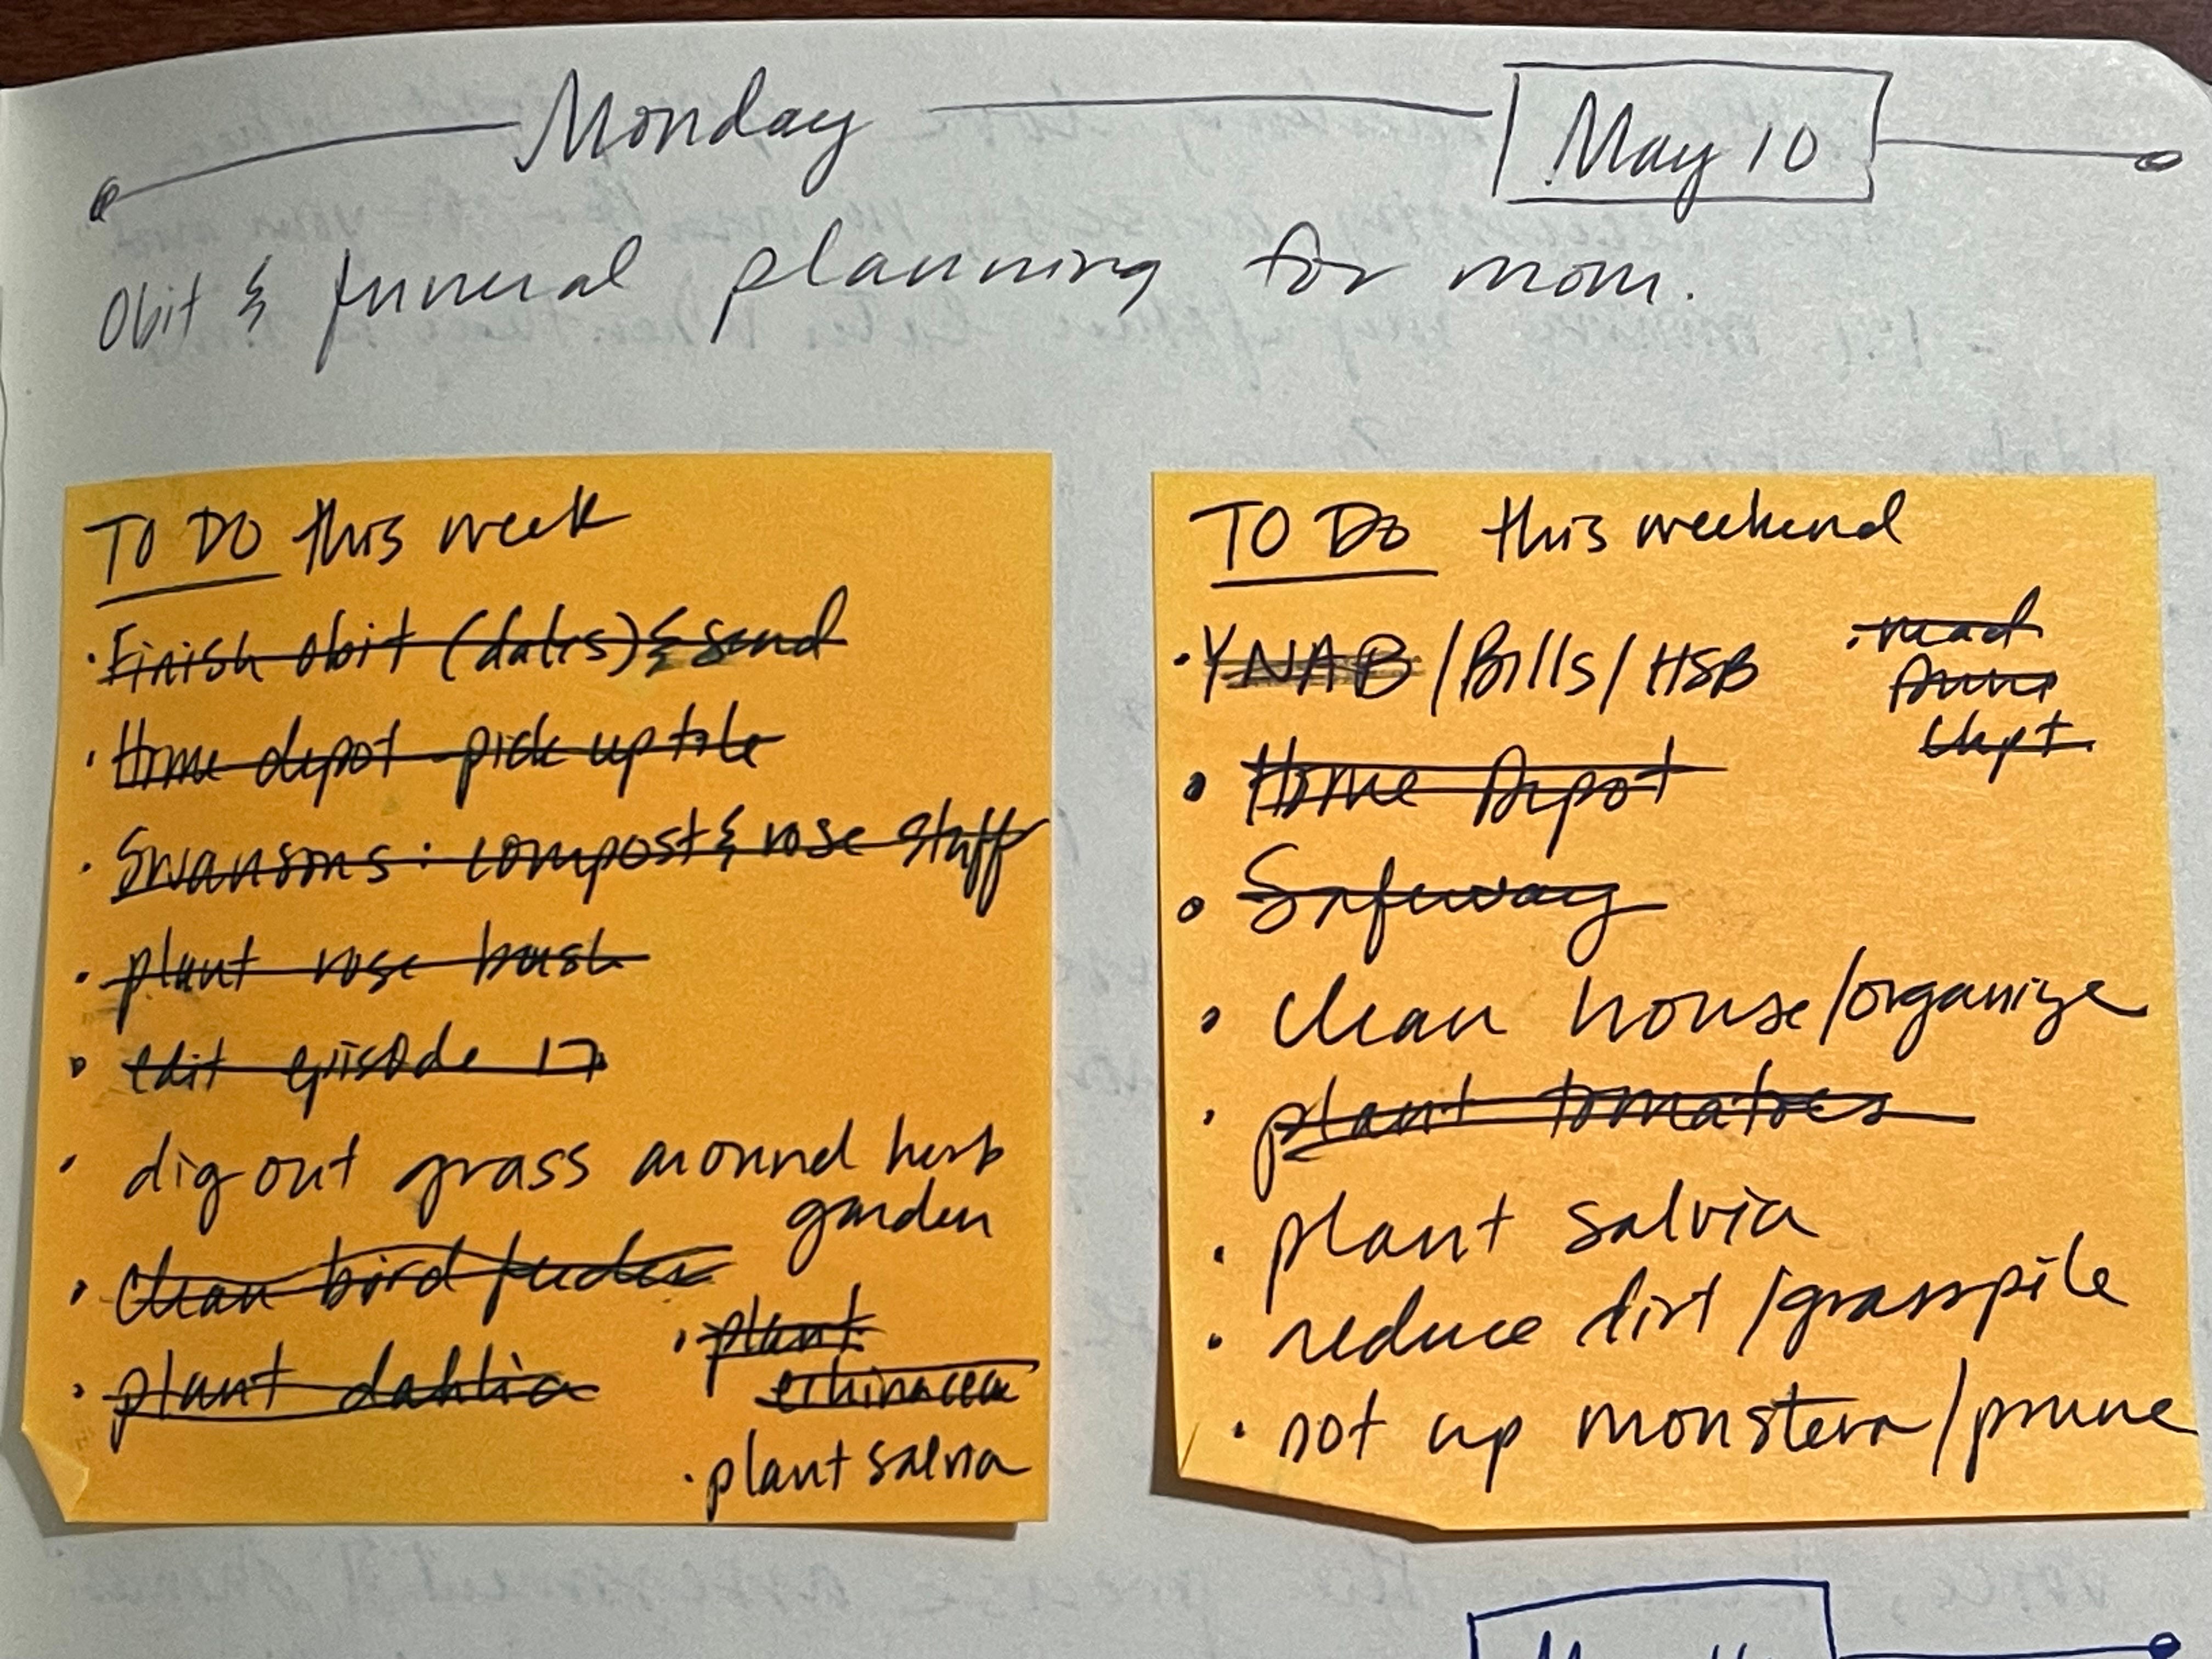 Monday May 10
Obit & funeral planning for mom.
TO DO this week
· Finish obit (dates) & send
· Home depot - pick up tile
· Swansons: compost & rose stuff
· plant rose bush
· edit episode 17
· dig out grass around herb
garden
· clean bird feeder
· plant dahlia
· plant
echinacea
· plant salvia
TO DO this weekend
· YNAB/Bills/HSB
· read
Chpt
· Home Depot
· Safeway
· clean house/organize
· plant tomatoes
· plant salvia
· reduce dirt/grass pile
· pot up monstera/prune